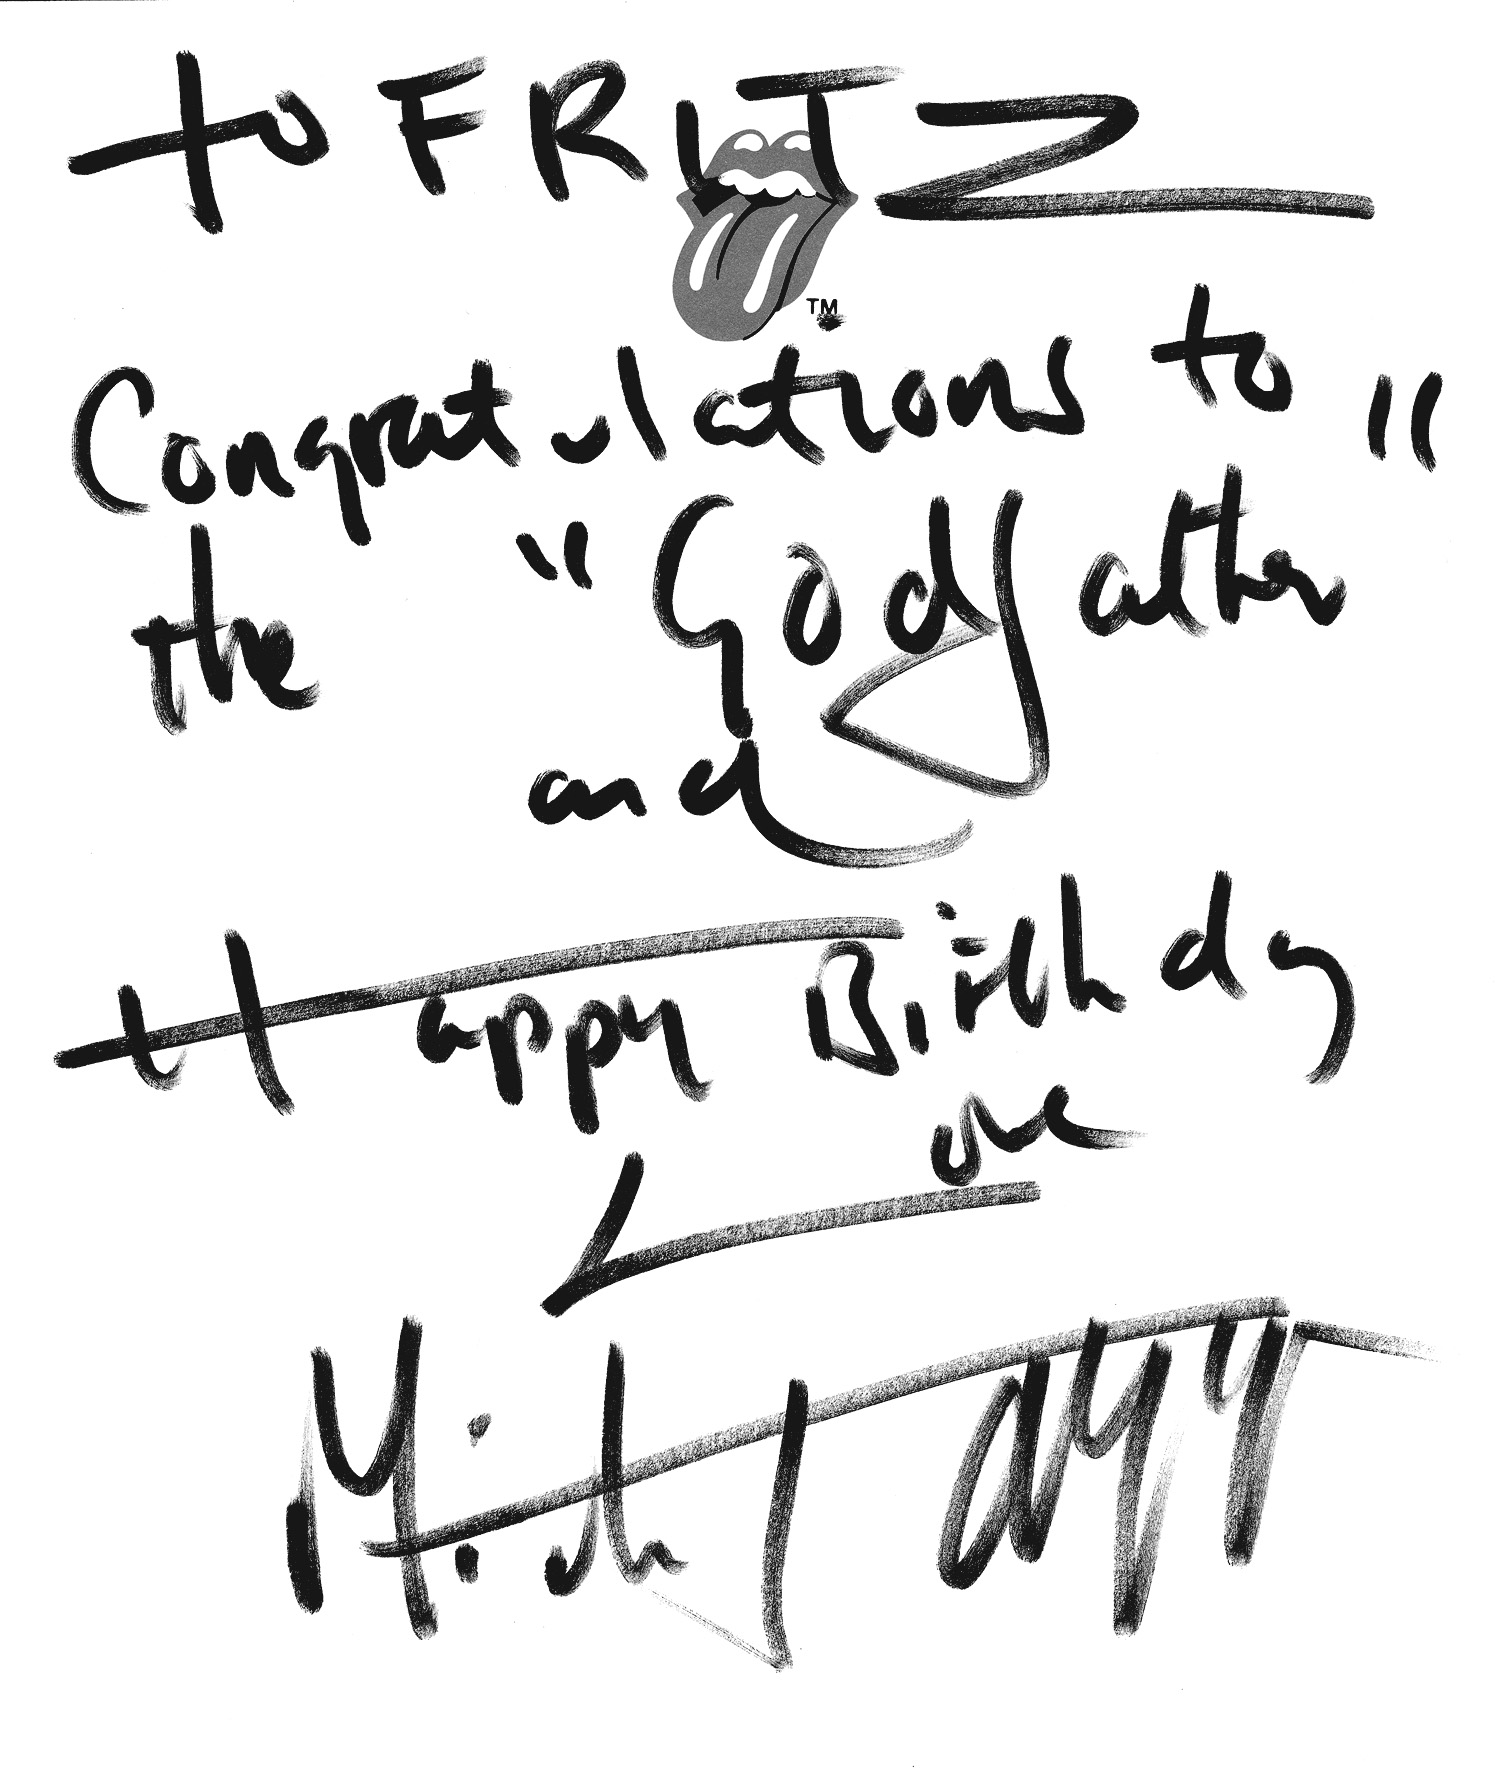 to FRITZ
TM
Congratulations to
the "Godfather"
and
Happy Birthday
Love
Mick Jagger